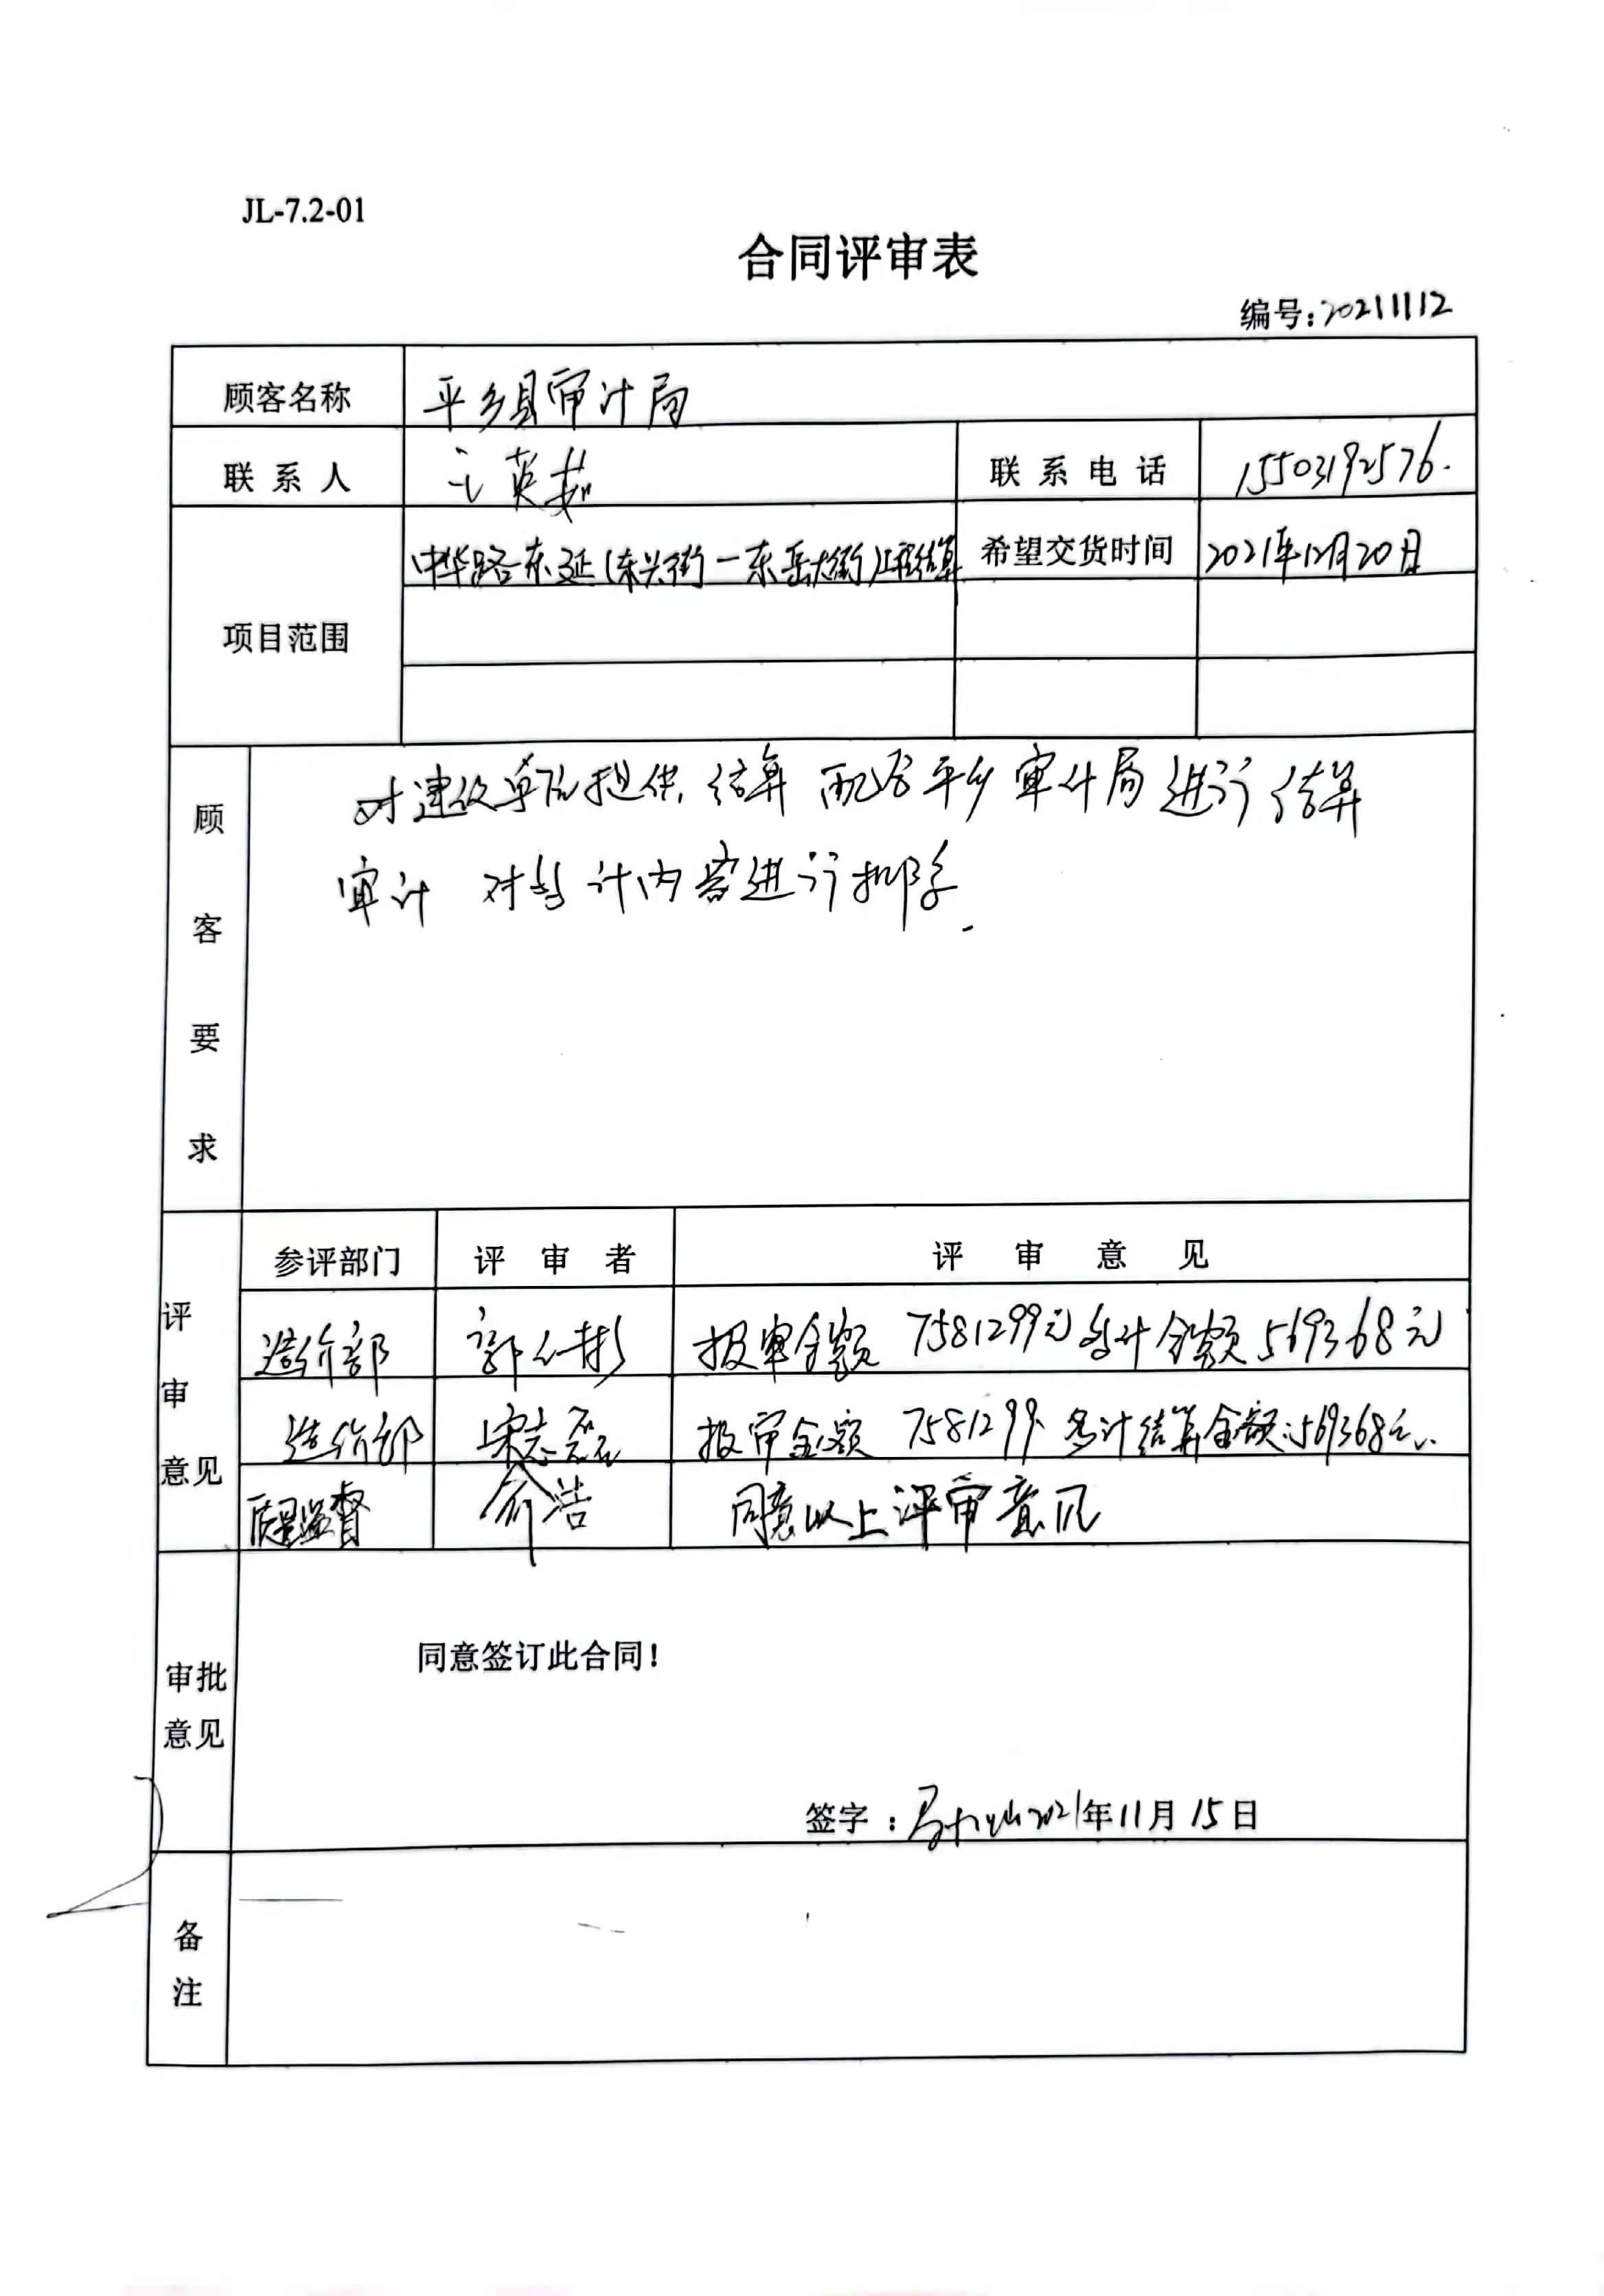 JL-7.2-01
合同评审表
编号:20211112
顾客名称 平乡县审计局
联系人 英茹 联系电话 15503192576.
中华路东延(东兴街一东岳大街)工程结算 希望交货时间 2021年12月20日
项目范围
对建设单位提供结算 配合平乡审计局进行结算
审计 对多计内容进行扣除.
顾客要求
参评部门 评审者 评审意见
造价部 郭仁彬 报审金额 7581299元 多计金额569368元
造价部 宋志磊 报审金额 7581299. 多计结算金额:569368元.
质量监督 俞浩 同意以上评审意见
评审意见
同意签订此合同!
审批意见
签字: 2021年11月15日
备注